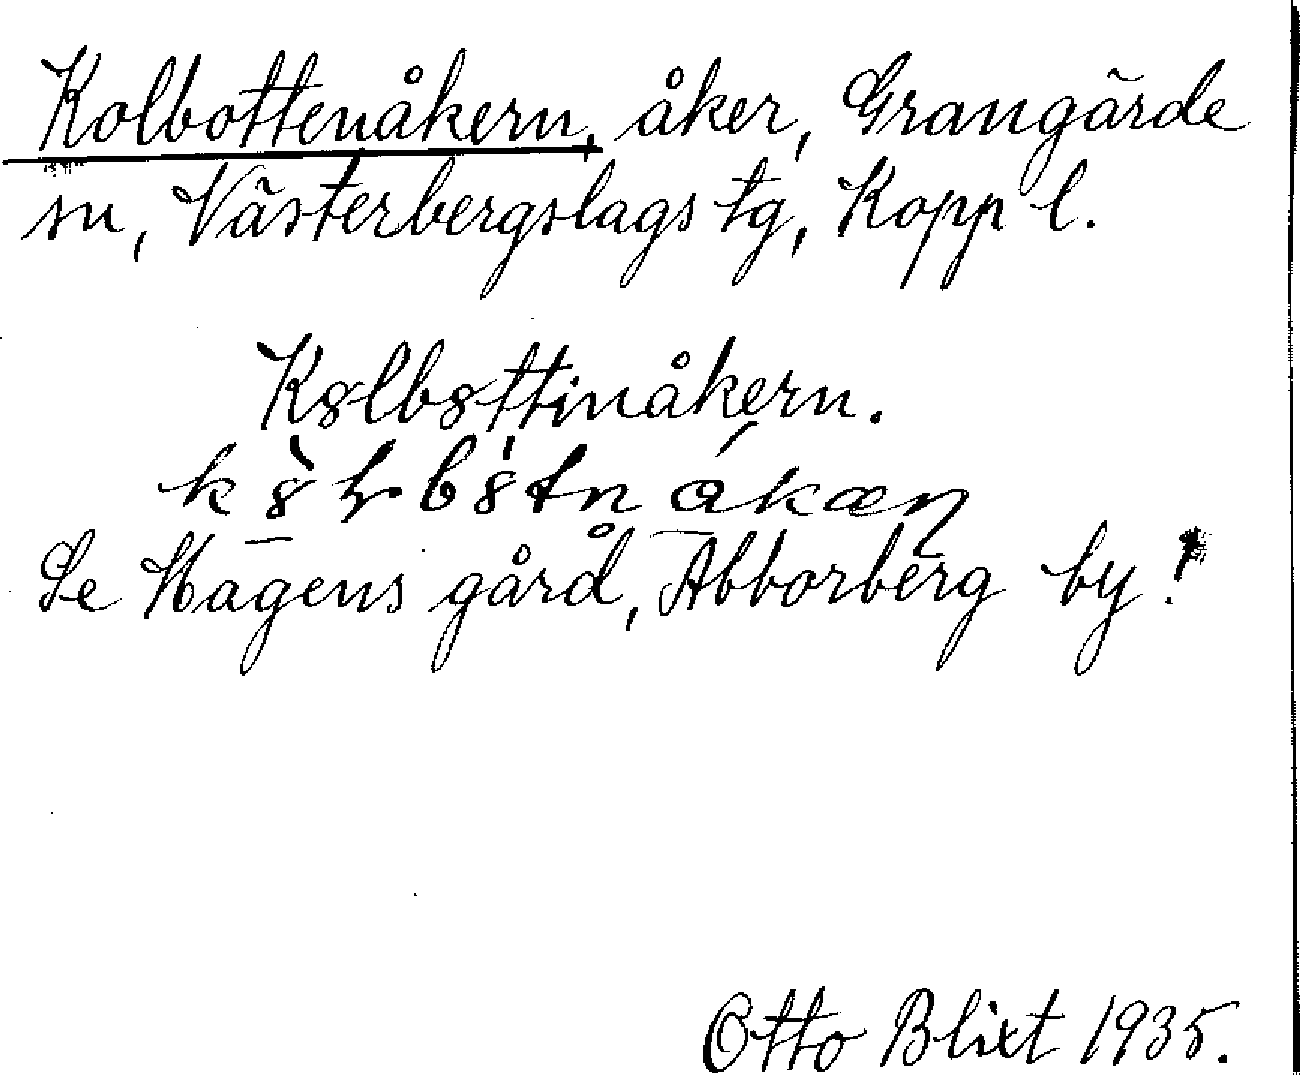 Kolbottenåkern, åker, Grangärde
sn, Västerbergslags tg, Kopp l.
K8lb8ttinåkern.
Se Hagens gård, Abborberg by!
Otto Blixt 1935.